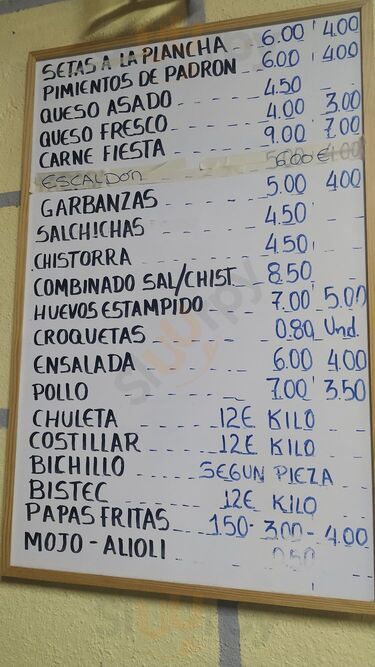 SETAS A LA PLANCHA - 6.00 ' 4.00
PIMIENTOS DE PADRON - 6.00 ' 4.00
QUESO ASADO - - - - 4.50 - -
QUESO FRESCO - - - - 4.00 3.00
CARNE FIESTA - - - - 9.00 7.00
ESCALDON 6.00€
GARBANZAS - - - - 5.00 4.00
SALCHICHAS - - - - 4.50 - -
CHISTORRA - - - - 4.50 - -
COMBINADO SAL/CHIST. 8.50 - -
HUEVOS ESTAMPIDO - - 7.00 ' 5.00
CROQUETAS - - - - 0.80 Und.
ENSALADA - - - - 6.00 4.00
POLLO - - - - 7.00 ' 3.50
CHULETA - - - 12€ KILO
COSTILLAR - - - 12€ KILO
BICHILLO - - - SEGUN PIEZA
BISTEC - - - 12€ KILO
PAPAS FRITAS - 1.50 - 3.00 - 4.00
MOJO - ALIOLI - - 0.50
sluurpy